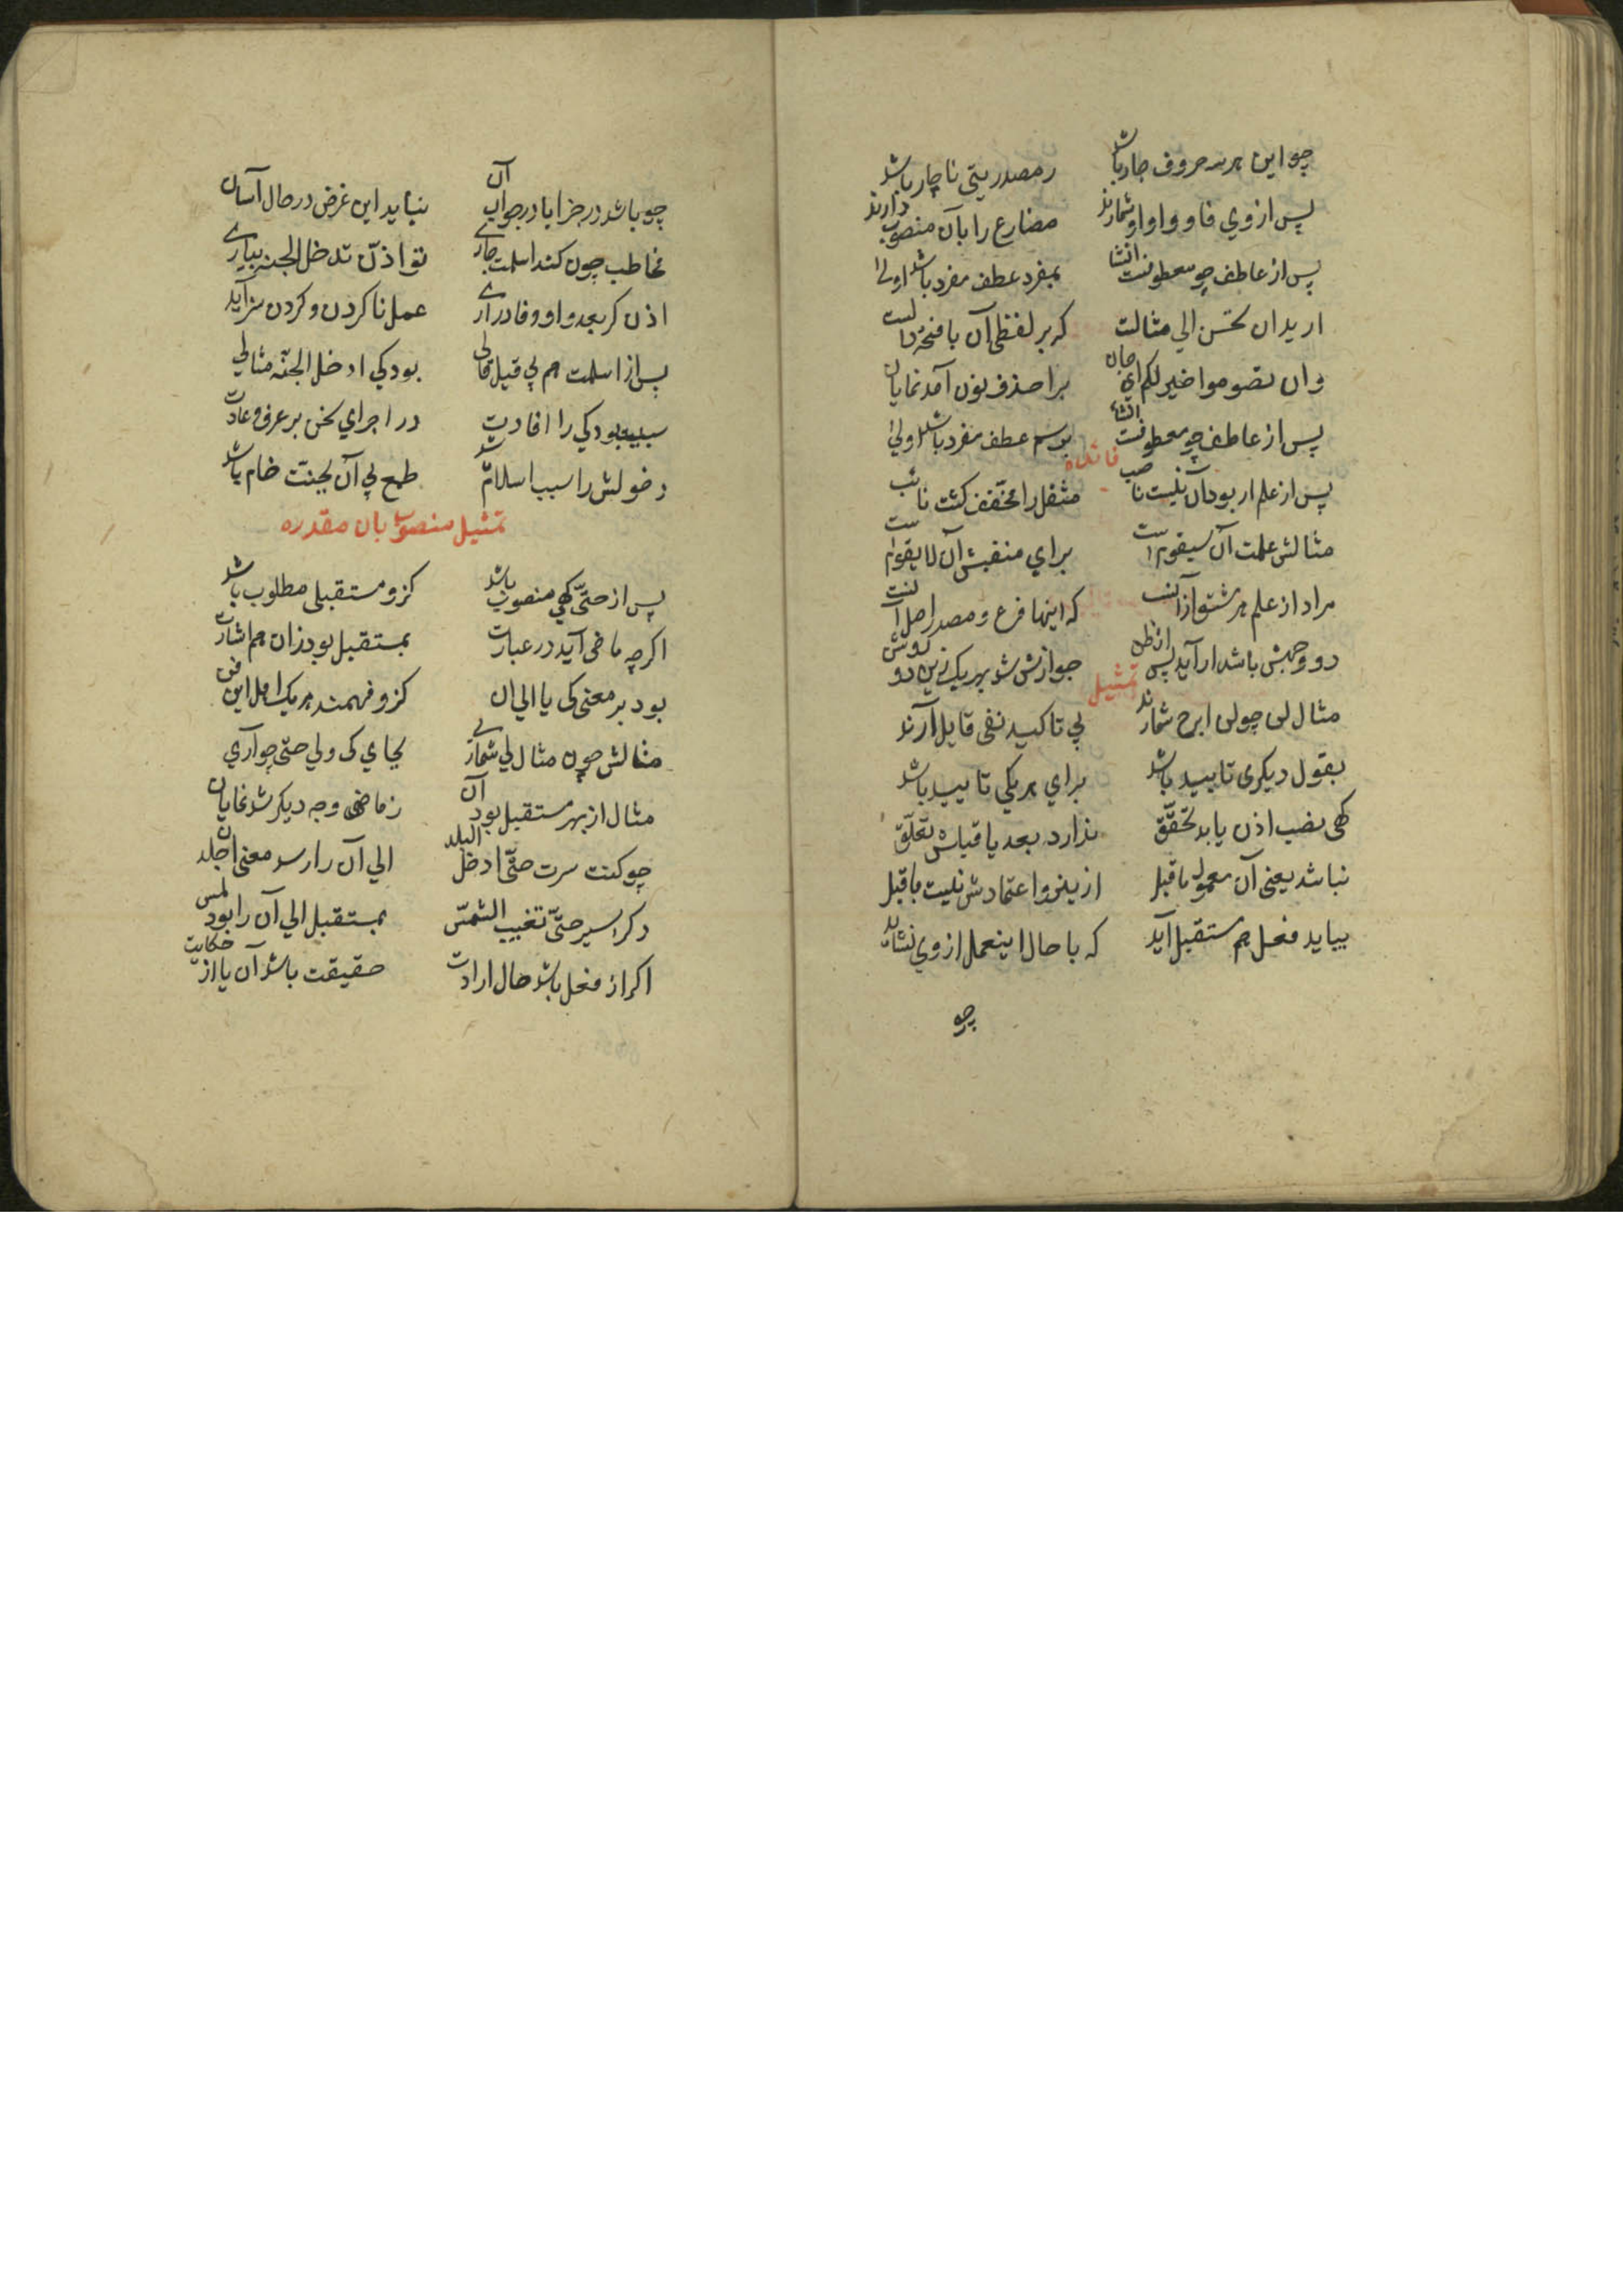 چو این هر سه حروف جار باشد    ز مصدریتی ناچار باشد
پس از وی فا و واو او شمارند    مضارع را بآن منصوب دارند
پس از عاطف چو معطوفست انشا    بمفرد عطف مفرد باشد اولی
ارید ان تحسن الی مثالت    که بر لفظی آن با فتحه دالت
وان تصوموا خیر لکم ای جان    برا حذف نون آمد نمایان
پس از عاطف چو معطوفست انشا    عطف مفرد باشد اولی
فائده
پس از علم ار بود آن نیست ناصب    مثقل را مخفف کشت نائب
مثالش علمت ان سیقوم است    برای منفیش ان لا یقوم است
مراد از علم هر مشتق ازانست    که اینها فرع و مصدر اصل آنست
دو وجهش باشد ار آید پس از ظن    جوازش شد بهر یک زین دو روشن
تمثیل
مثال لن چو لن ابرح شمارند    پی تاکید نفی قایل آرند
بقول دیکری تابید باشد    برای هر یکی تایید باشد
کهی نصب اذن یابد تحقق    ندارد بعد یا قبلش تعلق
نباشد یعنی آن معمول ماقبل    ازینرو اعتمادش نیست ماقبل
بیاید فعل هم مستقبل آید    که با حال اینعمل از وی نشاید
چو
چو باشد در جزا یا در جواب آن    نباید این غرض در حال آسان
مخاطب چون کند اسلمت جاری    تو اذن تدخل الجنه بیاری
اذن کر بعد واو و فا در آری    عمل ناکردن و کردن سزاید
پس از اسلمت هم پی قیل قالی    بود کی ادخل الجنه مثالی
سببیت بود کی را افادت    در اجرای سخن بر عرف و عادت
دخولش را سبب اسلام شد    طمع پی آن بجنت خام باشد
تمثیل منصوب بان مقدره
پس از حتی کهی منصوب باشد    کزو مستقبلی مطلوب باشد
اکرچه ماضی آید در عبارت    بمستقبل بود زان هم اشارت
بود بر معنی کی یا الی ان    کزو فهمند هر یک اهل این فن
مثالش چون مثال لی شماری    بجای کی ولی حتی چو آری
مثال از بهر مستقبل بود آن    ز ماضی وجه دیکر شد نمایان
چو کنت سرت حتی ادخل البلد    الی آن را رسد معنی
دکر اسیر حتی تغیب الشمس    بمستقبل الی آن را بود لمس
اکر از فعل باشد حال ارادت    حقیقت باشد آن یا از حکایت